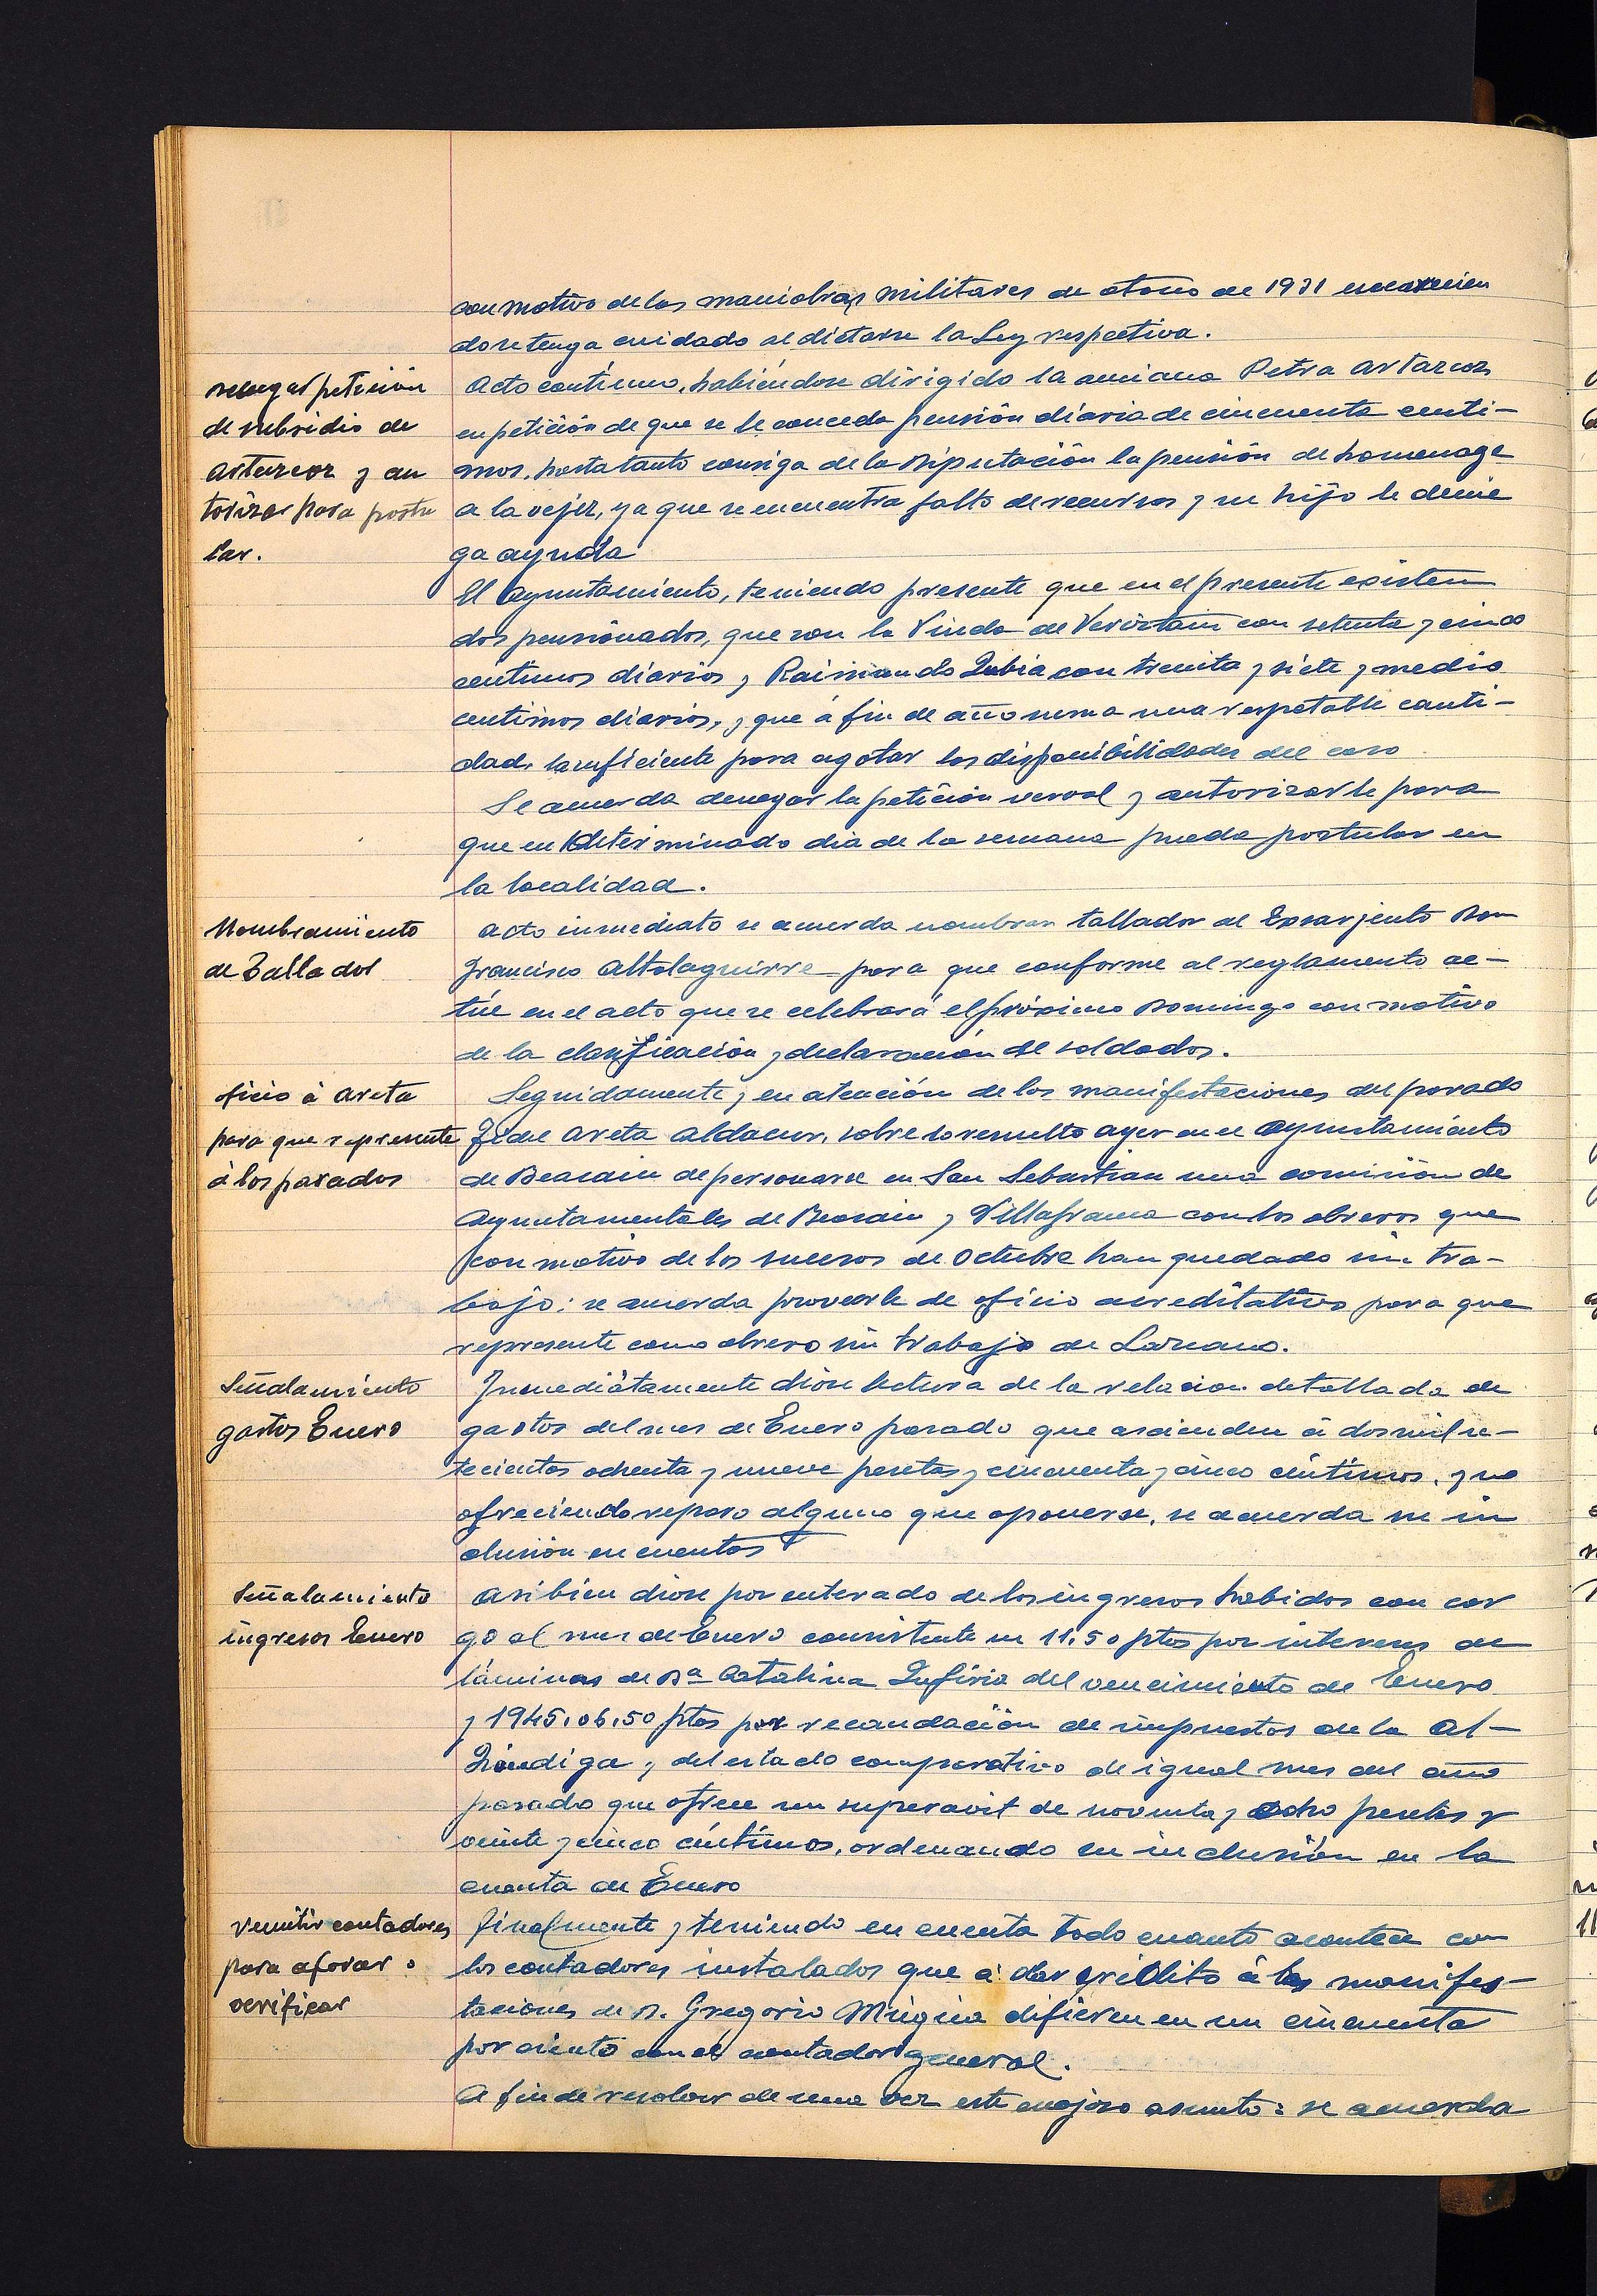 con motivo de las maniobras militares de otoño de 1931 encarecien
do se tenga cuidado al dictarse la Ley respectiva.
denegar petición
de subsidio de
Artarcoz y au
torizar para postu
lar.
Acto continuo, habiéndose dirigido la anciana Petra Artarcoz
en petición de que se le conceda pensión diaria de cincuenta centi-
mos, hasta tanto consiga de la Diputación la pensión de homenage
a la vejez, ya que se encuentra falto de recursos y su hijo le denie
ga ayuda
El Ayuntamiento, teniendo presente que en el presente existen
dos pensionados, que son la Viuda de con setenta y cinco
centimos diarios y Raimundo Zubia con treinta y siete y medio
centimos diarios, y que á fin de año suma una respetable canti-
dad, la suficiente para agotar las disponibilidades del caso
Se acuerda denegar la petición verval y autorizarle para
que en determinado dia de la semana pueda postular en
la localidad.
Nombramiento
de Tallador
Acto inmediato se acuerda nombrar tallador al Exsarjento Don
Francisco Altolaguirre para que conforme al reglamento ac-
túe en el acto que se celebrará el próximo Domingo con motivo
de la clasificación y declaración de soldados.
oficio á Areta
para que represente
á los parados
Seguidamente y en atención de los manifestaciones del parado
Fidel Areta Aldasur, sobre lo resuelto ayer en el Ayuntamiento
de Beasain de personarse en San Sebastian una comisión de
Ayuntamentales de Beasain y Villafranca con los obreros que
con motivo de los sucesos de Octubre han quedado sin tra-
bajo: se acuerda proveerle de oficio acreditativo para que
represente como obrero sin trabajo de Lazcano.
Señalamiento
gastos Enero
Inmediátamente dióse lectura de la relacion detallada de
gastos del mes de Enero pasado que ascienden á dos mil se-
tecientos ochenta y nueve pesetas y cincuenta y cinco céntimos, y no
ofreciendo reparo alguno que oponerse, se acuerda su in
clusión en cuentas
Señalamiento
ingresos Enero
Asibien dióse por enterado de los ingresos habidos con car
go al mes de Enero consistente en 11,50 ptas por intereses de
láminas de Dª Catalina del vencimiento de Enero
y 1945,06,50 ptas por recaudación de impuestos de la Al-
hóndiga y del estado comparativo de igual mes del año
pasado que ofrece un superavit de noventa y ocho pesetas y
veinte y cinco céntimos, ordenando su inclusión en la
cuenta de Enero
remitir contadores
para aforar o
verificar
finalmente y teniendo en cuenta todo cuanto acontece con
los contadores instalados que á dar crédito á las manifes-
taciones de D. Gregorio Múgica difieren en un cincuenta
por ciento con el contador general.
A fin de resolver de una vez este enojoso asunto: se acuerda